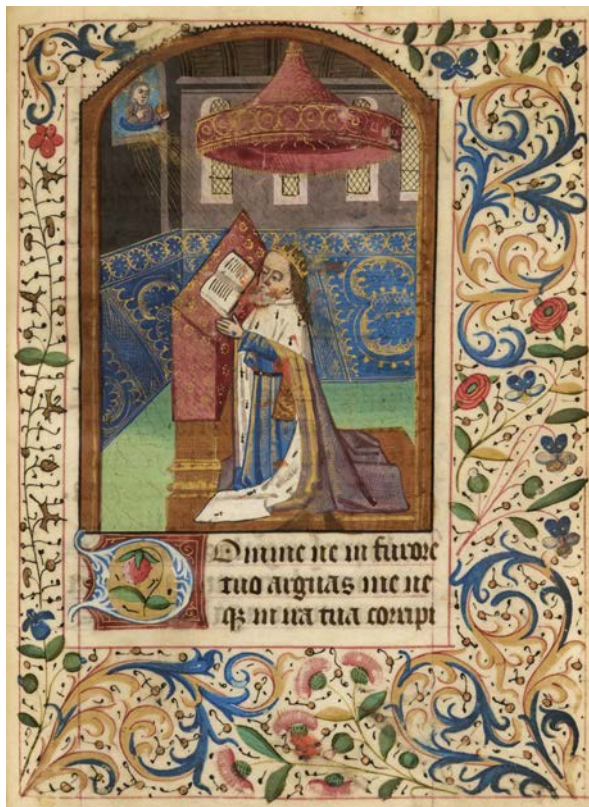 DOmine ne in furore
tuo arguas me ne
qꝫ in ira tua corripi